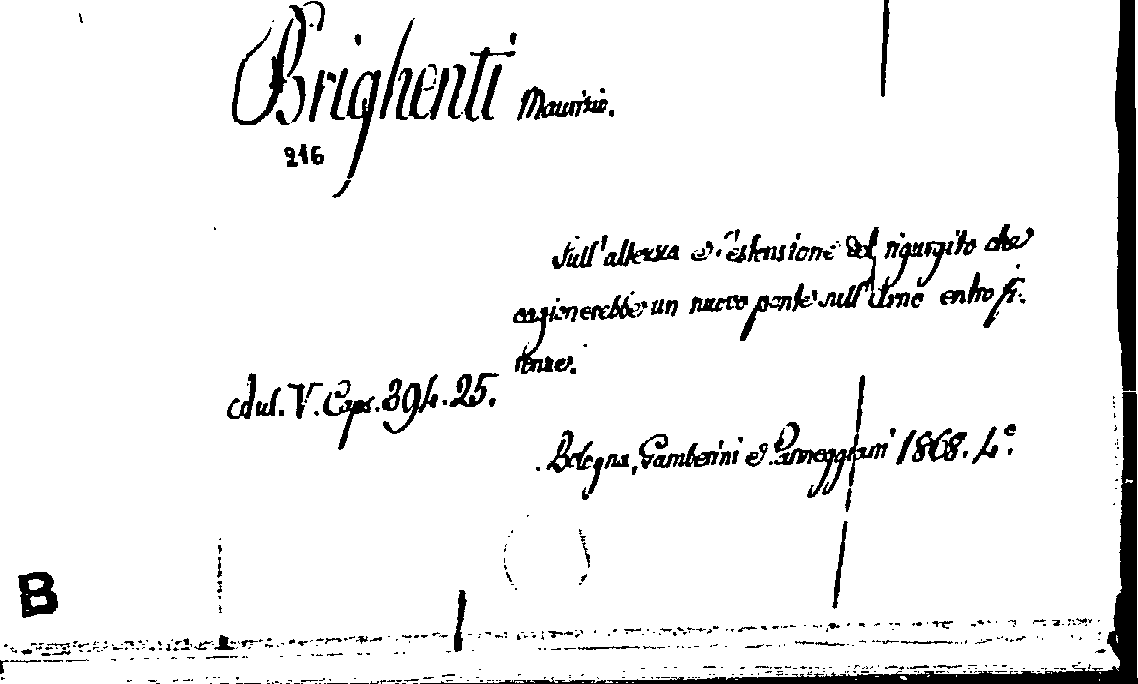 Brighenti Maurizio.
216
Sull'altezza e l'estensione del rigurgito che
cagionerebbe un nuovo ponte sull'Arno entro Fi-
renze.
Aul. V. Caps. 394. 25.
Bologna, Gamberini e Parmeggiani 1868. 4.°
B